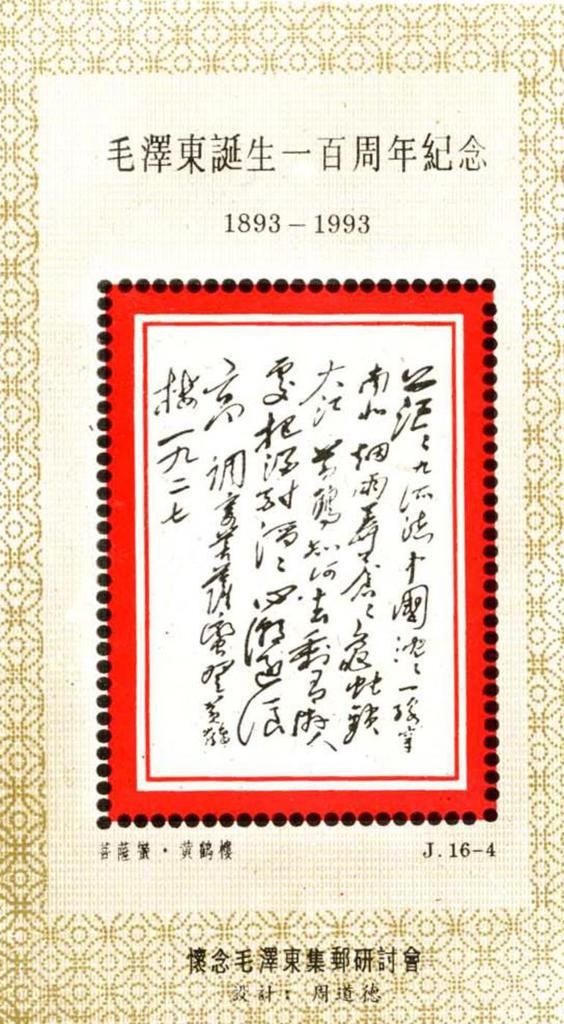 毛澤東誕生一百周年紀念
1893－1993
茫〻九派流中國沉〻一線穿
南北烟雨莽蒼〻龜蛇鎖
大江黃鶴知何去剩有游人
處把酒酹滔〻心潮逐浪
高 調寄菩薩蠻登黃鶴
樓一九二七
菩薩蠻·黄鶴樓
J.16-4
懷念毛澤東集郵研討會
設計：周道德